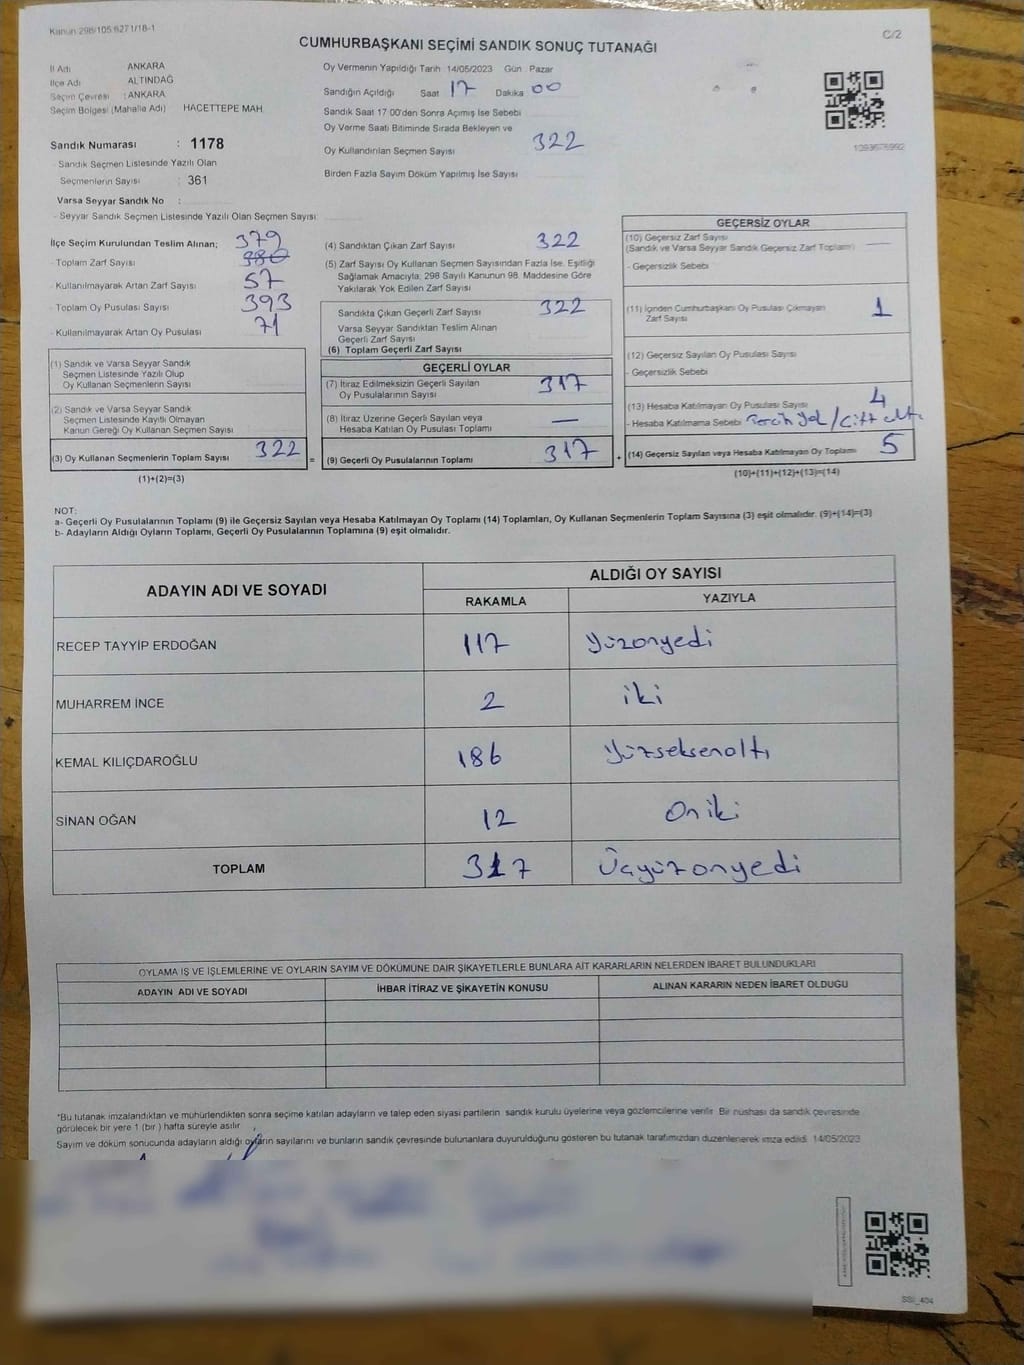 Kanun 298/105 6271/18-1
C/2
CUMHURBAŞKANI SEÇİMİ SANDIK SONUÇ TUTANAĞI
İl Adı ANKARA
İlçe Adı ALTINDAĞ
Seçim Çevresi : ANKARA
Seçim Bölgesi (Mahalle Adı) HACETTEPE MAH.
Oy Vermenin Yapıldığı Tarih 14/05/2023 Gün Pazar
Sandığın Açıldığı Saat 17 Dakika 00
Sandık Saat 17 00'den Sonra Açımış İse Sebebi
Oy Verme Saati Bitiminde Sırada Bekleyen ve
Oy Kullandırılan Seçmen Sayısı 322
Birden Fazla Sayım Döküm Yapılmış İse Sayısı
Sandık Numarası : 1178
- Sandık Seçmen Listesinde Yazılı Olan
Seçmenlerin Sayısı : 361
Varsa Seyyar Sandık No :
- Seyyar Sandık Seçmen Listesinde Yazılı Olan Seçmen Sayısı:
İlçe Seçim Kurulundan Teslim Alınan; 379
- Toplam Zarf Sayısı 380
- Kullanılmayarak Artan Zarf Sayısı 57
- Toplam Oy Pusulası Sayısı 393
- Kullanılmayarak Artan Oy Pusulası 71
(1) Sandık ve Varsa Seyyar Sandık
Seçmen Listesinde Yazılı Olup
Oy Kullanan Seçmenlerin Sayısı
(2) Sandık ve Varsa Seyyar Sandık
Seçmen Listesinde Kayıtlı Olmayan
Kanun Gereği Oy Kullanan Seçmen Sayısı
(3) Oy Kullanan Seçmenlerin Toplam Sayısı 322 =
(1)+(2)=(3)
(4) Sandıktan Çıkan Zarf Sayısı 322
(5) Zarf Sayısı Oy Kullanan Seçmen Sayısından Fazla İse, Eşitliği
Sağlamak Amacıyla, 298 Sayılı Kanunun 98. Maddesine Göre
Yakılarak Yok Edilen Zarf Sayısı
Sandıkta Çıkan Geçerli Zarf Sayısı 322
Varsa Seyyar Sandıktan Teslim Alınan
Geçerli Zarf Sayısı
(6) Toplam Geçerli Zarf Sayısı
GEÇERLİ OYLAR
(7) İtiraz Edilmeksizin Geçerli Sayılan
Oy Pusulalarının Sayısı 317
(8) İtiraz Üzerine Geçerli Sayılan veya
Hesaba Katılan Oy Pusulası Toplamı —
(9) Geçerli Oy Pusulalarının Toplamı 317 +
GEÇERSİZ OYLAR
(10) Geçersiz Zarf Sayısı
(Sandık ve Varsa Seyyar Sandık Geçersiz Zarf Toplamı) —
- Geçersizlik Sebebi
(11) İçinden Cumhurbaşkanı Oy Pusulası Çıkmayan
Zarf Sayısı 1
(12) Geçersiz Sayılan Oy Pusulası Sayısı
- Geçersizlik Sebebi
(13) Hesaba Katılmayan Oy Pusulası Sayısı 4
- Hesaba Katılmama Sebebi
(14) Geçersiz Sayılan veya Hesaba Katılmayan Oy Toplamı 5
(10)+(11)+(12)+(13)=(14)
NOT:
a- Geçerli Oy Pusulalarının Toplamı (9) ile Geçersiz Sayılan veya Hesaba Katılmayan Oy Toplamı (14) Toplamları, Oy Kullanan Seçmenlerin Toplam Sayısına (3) eşit olmalıdır. (9)+(14)=(3)
b- Adayların Aldığı Oyların Toplamı, Geçerli Oy Pusulalarının Toplamına (9) eşit olmalıdır.
ADAYIN ADI VE SOYADI
ALDIĞI OY SAYISI
RAKAMLA YAZIYLA
RECEP TAYYİP ERDOĞAN 117 Yüzonyedi
MUHARREM İNCE 2 iki
KEMAL KILIÇDAROĞLU 186 Yüzseksenaltı
SİNAN OĞAN 12 Oniki
TOPLAM 317 Üçyüzonyedi
OYLAMA İŞ VE İŞLEMLERİNE VE OYLARIN SAYIM VE DÖKÜMÜNE DAİR ŞİKAYETLERLE BUNLARA AİT KARARLARIN NELERDEN İBARET BULUNDUKLARI
ADAYIN ADI VE SOYADI İHBAR İTİRAZ VE ŞİKAYETİN KONUSU ALINAN KARARIN NEDEN İBARET OLDUĞU
*Bu tutanak imzalandıktan ve mühürlendikten sonra seçime katılan adayların ve talep eden siyasi partilerin sandık kurulu üyelerine veya gözlemcilerine verilir. Bir nüshası da sandık çevresinde
görülecek bir yere 1 (bir ) hafta süreyle asılır
Sayım ve döküm sonucunda adayların aldığı oyların sayılarını ve bunların sandık çevresinde bulunanlara duyurulduğunu gösteren bu tutanak tarafımızdan düzenlenerek imza edildi. 14/05/2023